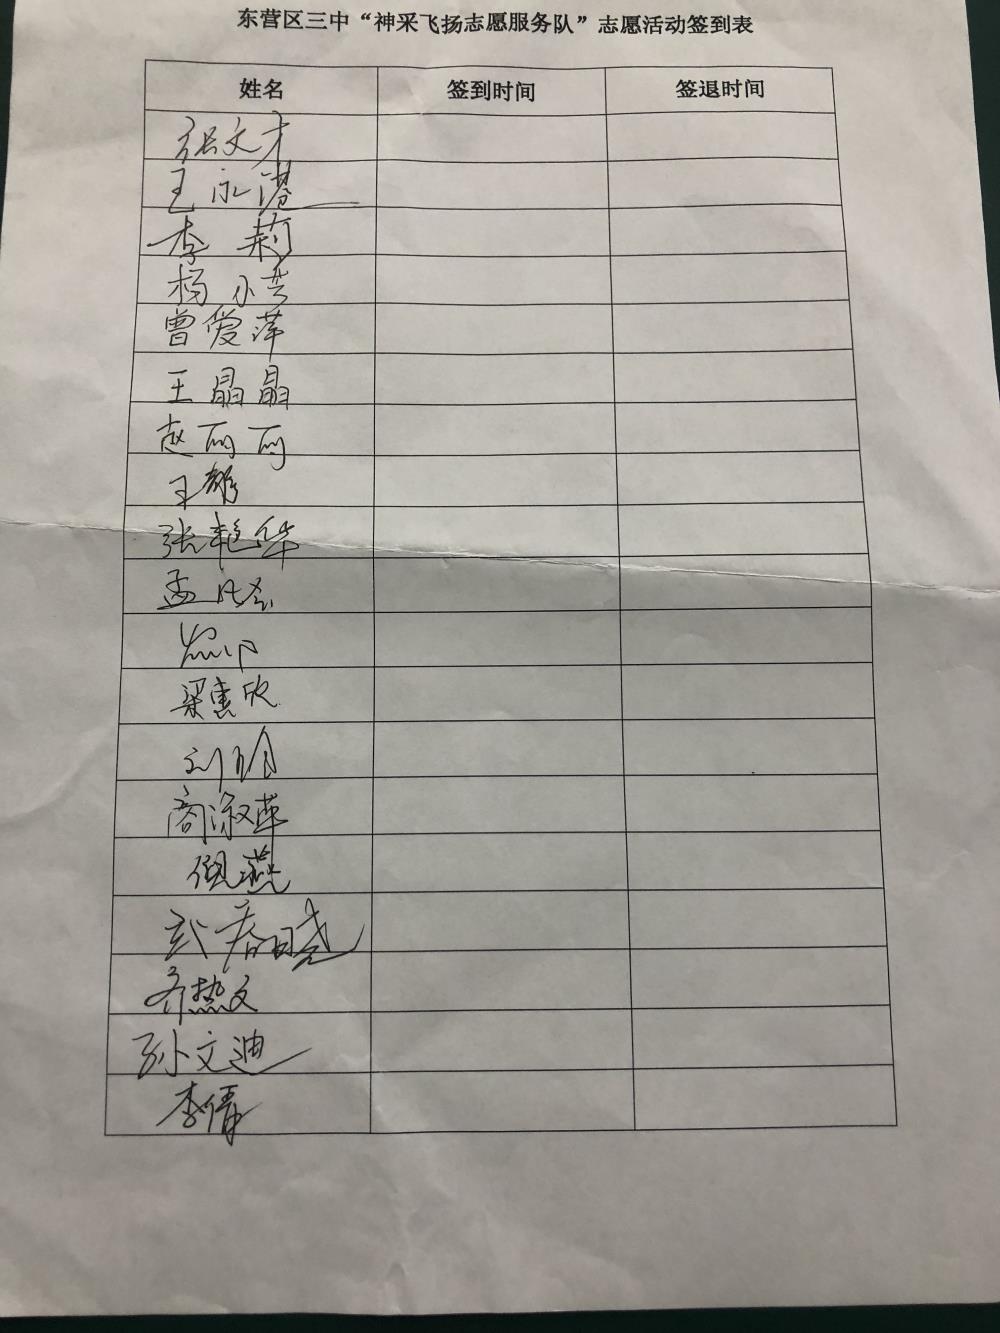 东营区三中“神采飞扬志愿服务队”志愿活动签到表
姓名 签到时间 签退时间
张文才
王永港
李莉
杨小芸
曾爱萍
王晶晶
赵丽丽
王静
张艳华
孟
梁惠欣
刘
商淑莲
倪燕
武春晓
齐热文
孙文迪
李倩